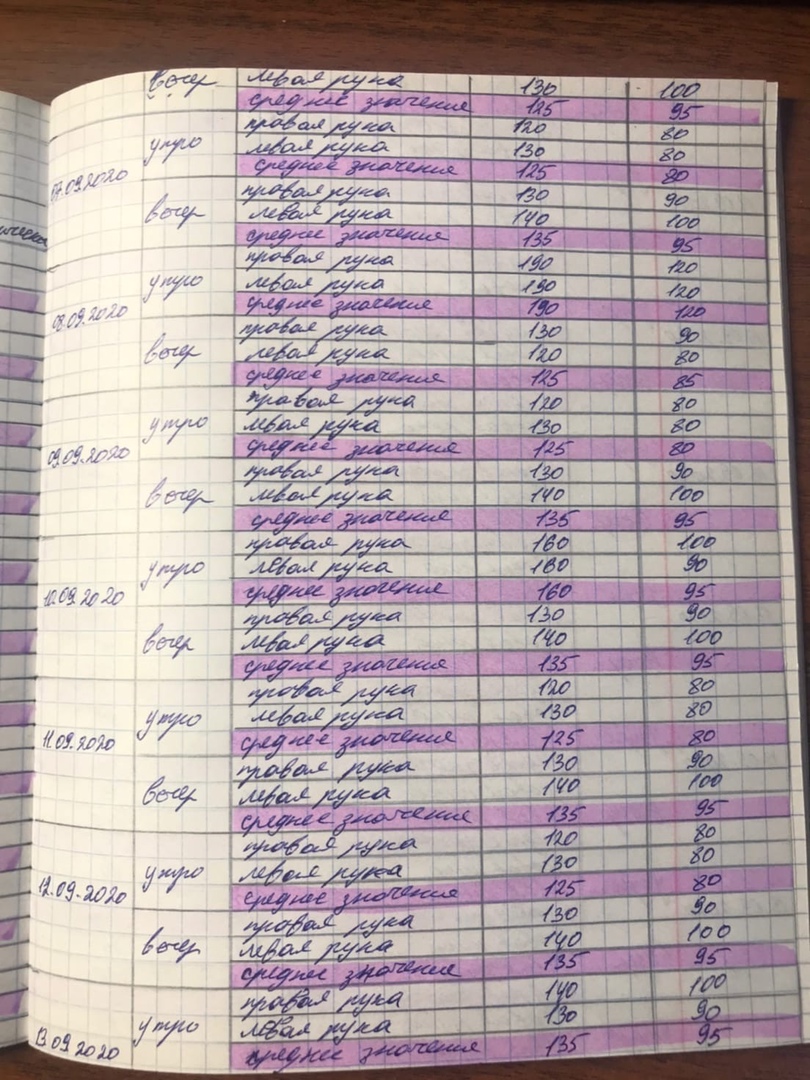 вечер левая рука 130 100
среднее значение 125 95
правая рука 120 80
утро левая рука 130 80
07.09.2020 среднее значение 125 80
правая рука 130 90
вечер левая рука 140 100
среднее значение 135 95
правая рука 190 120
утро левая рука 190 120
08.09.2020 среднее значение 190 120
правая рука 130 90
вечер левая рука 120 80
среднее значение 125 85
правая рука 120 80
утро левая рука 130 80
09.09.2020 среднее значение 125 80
правая рука 130 90
вечер левая рука 140 100
среднее значение 135 95
правая рука 160 100
утро левая рука 160 90
10.09.2020 среднее значение 160 95
правая рука 130 90
вечер левая рука 140 100
среднее значение 135 95
правая рука 120 80
утро левая рука 130 80
11.09.2020 среднее значение 125 80
правая рука 130 90
вечер левая рука 140 100
среднее значение 135 95
правая рука 120 80
утро левая рука 130 80
12.09.2020 среднее значение 125 80
правая рука 130 90
вечер левая рука 140 100
среднее значение 135 95
правая рука 140 100
утро левая рука 130 90
13.09.2020 среднее значение 135 95